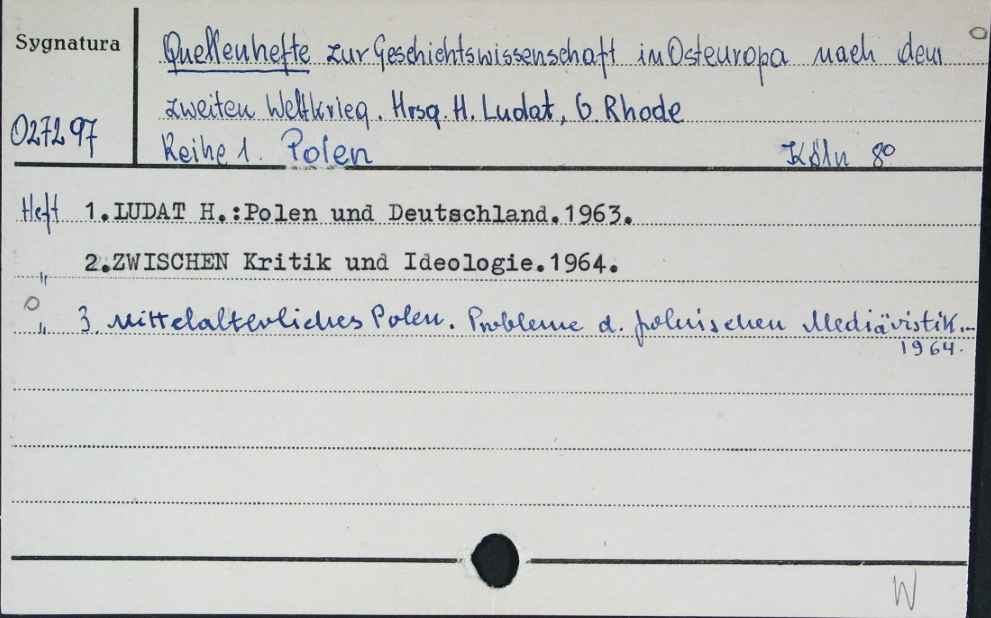 Sygnatura
Quellenhefte zur Geschichtswissenschaft in Osteuropa nach dem
zweiten Weltkrieg. Hrsg. H. Ludat, G. Rhode
027297
Reihe 1. Polen Köln 8°
Heft 1. LUDAT H.: Polen und Deutschland. 1963.
" 2. ZWISCHEN Kritik und Ideologie. 1964.
" 3. Mittelalterliches Polen. Probleme d. polnischen Mediävistik...
1964.
W